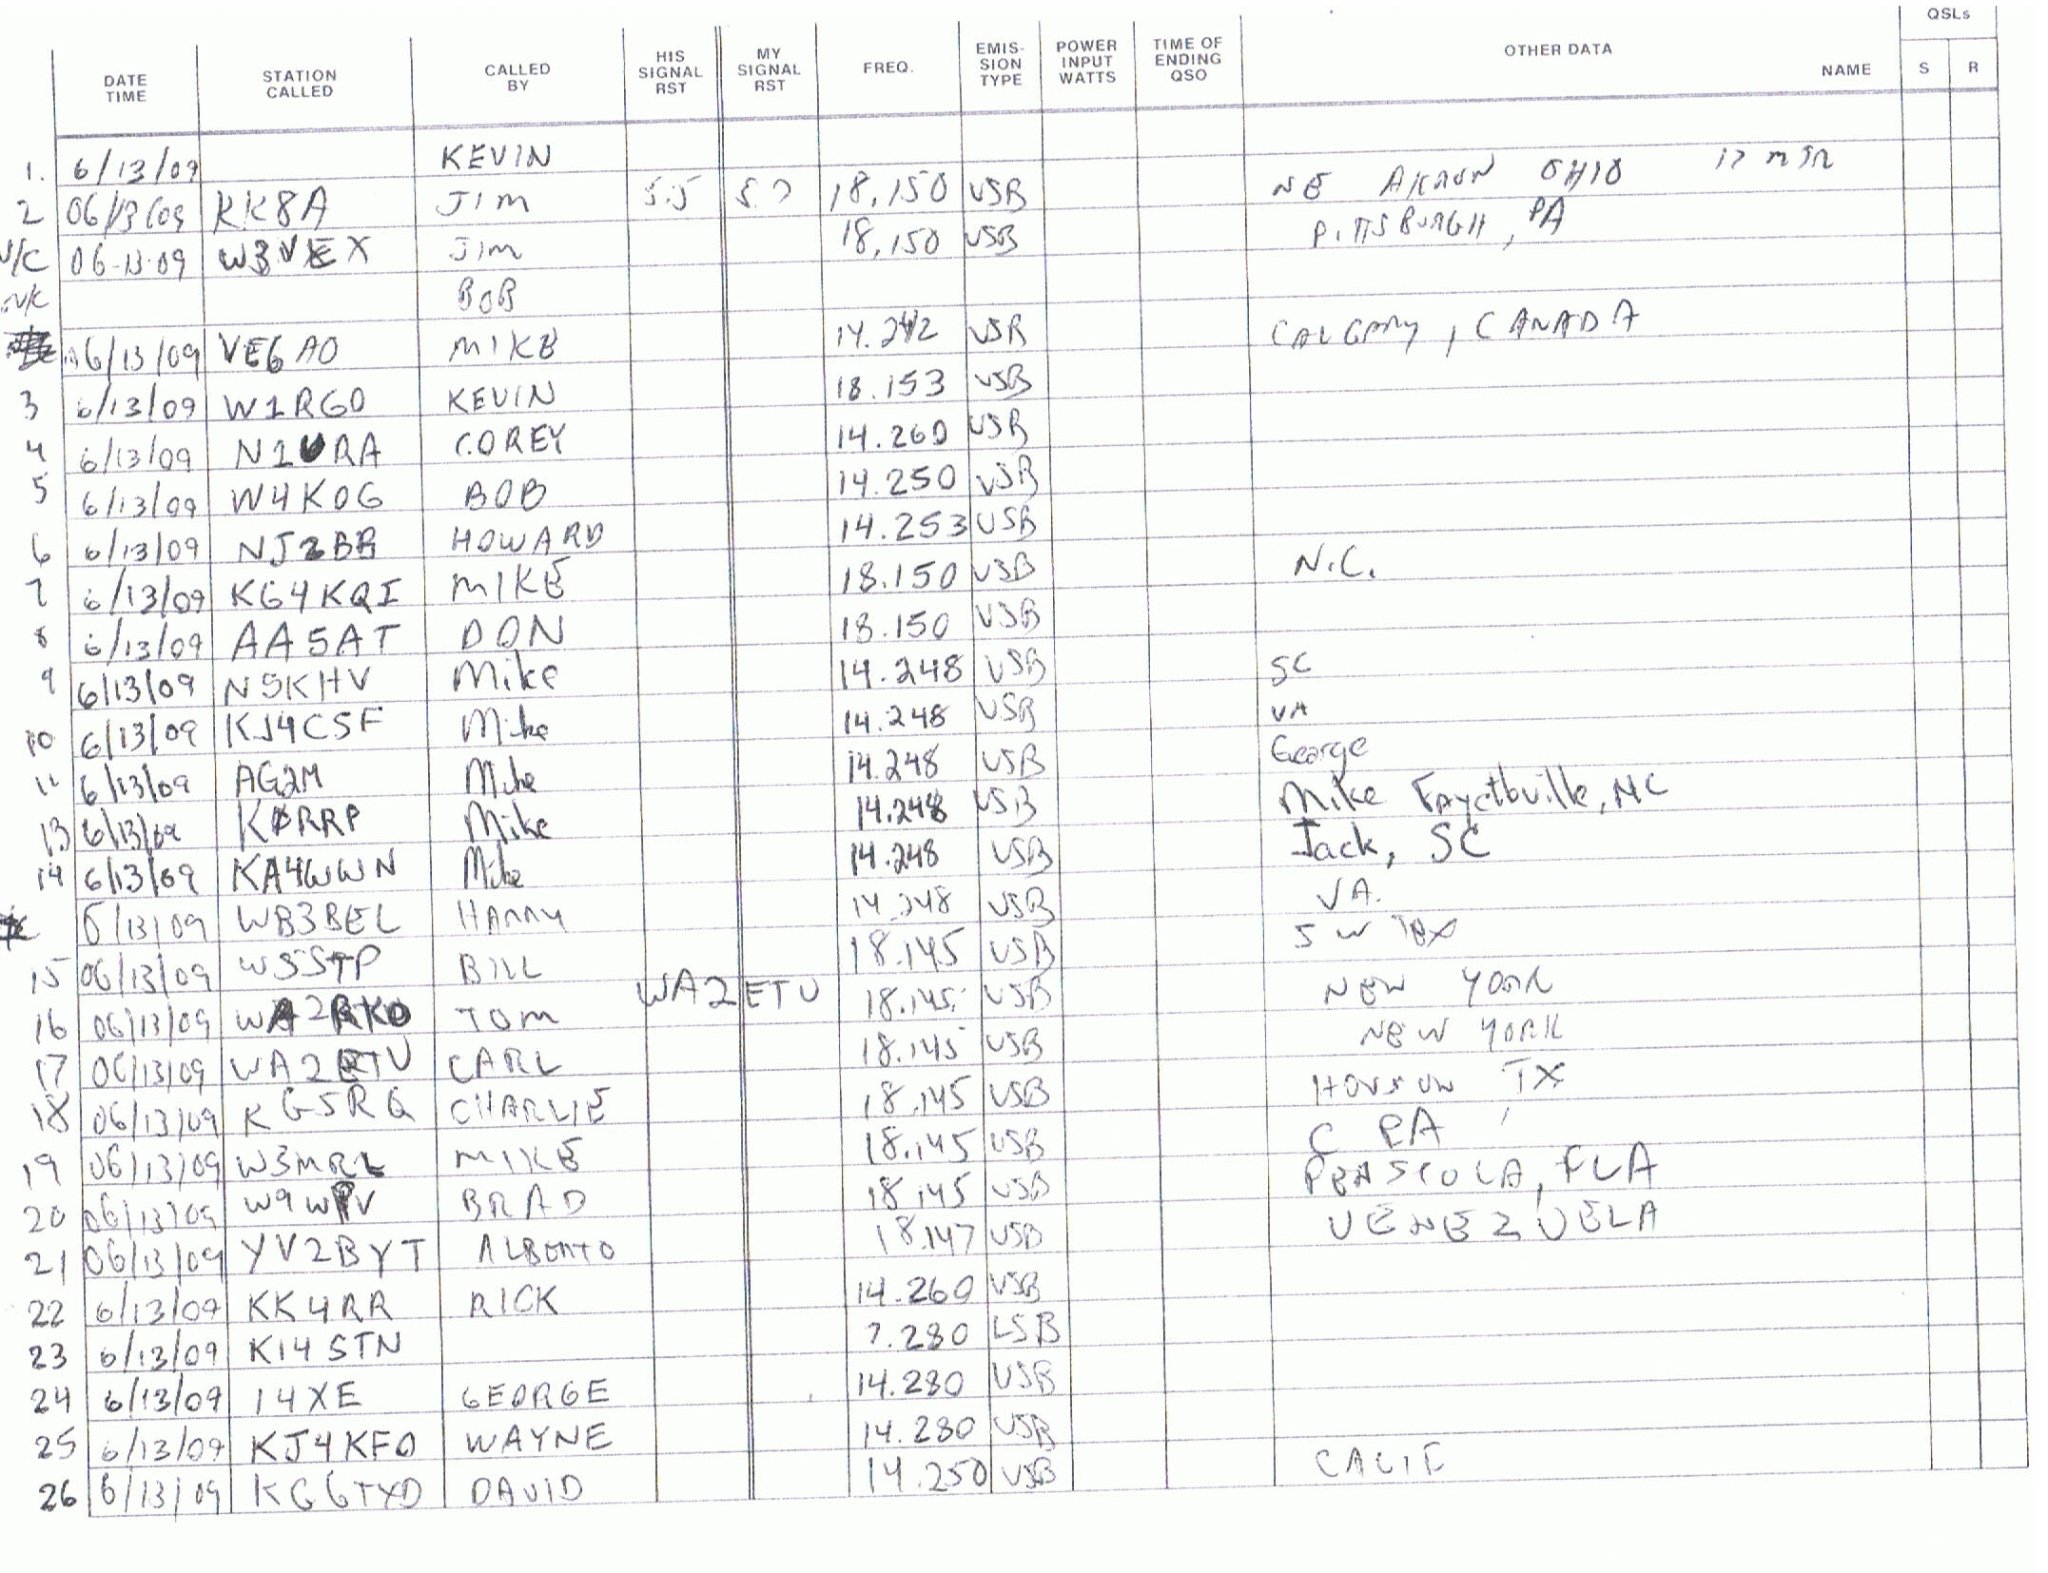 QSLs
DATE TIME STATION CALLED CALLED BY HIS SIGNAL RST MY SIGNAL RST FREQ. EMIS-SION TYPE POWER INPUT WATTS TIME OF ENDING QSO OTHER DATA NAME S R
1. 6/13/09 KEVIN
2 06/13/09 KK8A JIM 5.5 18.150 USB NE AKRON OHIO 17 MTR
06-13-09 W3VEX JIM 18.150 USB PITTSBURGH, PA
BOB
06/13/09 VE6AO MIKE 14.242 USB CALGARY, CANADA
3 6/13/09 W1RGO KEVIN 18.153 USB
4 6/13/09 N1URA COREY 14.260 USB
5 6/13/09 W4KOG BOB 14.250 USB
6 6/13/09 NJ2BB HOWARD 14.253 USB
7 6/13/09 KG4KQI MIKE 18.150 USB N.C.
8 6/13/09 AA5AT DON 18.150 USB
9 6/13/09 N5KHV Mike 14.248 USB SC
10 6/13/09 KJ4CSF Mike 14.248 USB VA
11 6/13/09 AG2M Mike 14.248 USB George
13 6/13/09 KØRRP Mike 14.248 USB Mike Fayettville, NC
14 6/13/09 KA4WWN Mike 14.248 USB Jack, SC
6/13/09 WB3BEL HARRY 14.248 USB VA.
15 06/13/09 W5STP BILL 18.145 USB SW TEX
16 06/13/09 WA2RKO TOM WA2ETU 18.145 USB NEW YORK
17 06/13/09 WA2ETU CARL 18.145 USB NEW YORK
18 06/13/09 KG5RG CHARLIE 18.145 USB HOUSTON TX
19 06/13/09 W3MRL MIKE 18.145 USB C PA
20 06/13/09 W9WPV BRAD 18.145 USB PENSICOLA, FLA
21 06/13/09 YV2BYT ALBERTO 18.147 USB VENEZUELA
22 6/13/09 KK4RR RICK 14.260 USB
23 6/13/09 KI4STN 7.280 LSB
24 6/13/09 I4XE GEORGE 14.280 USB
25 6/13/09 KJ4KFO WAYNE 14.280 USB
26 6/13/09 KG6TXD DAVID 14.250 USB CALIF